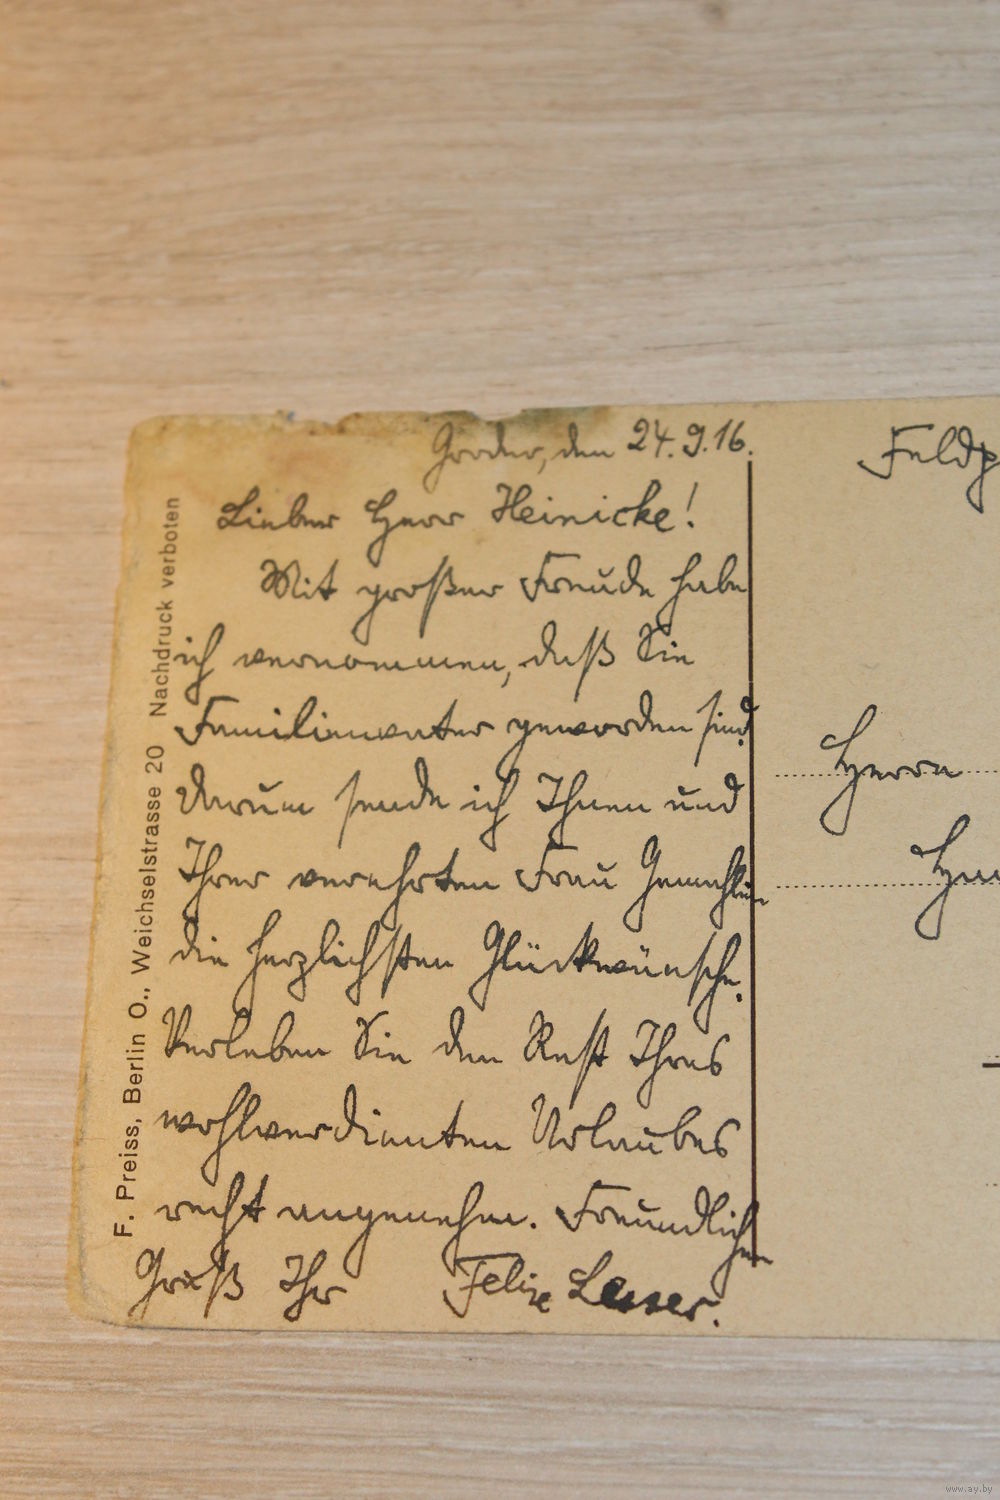 Grodno, den 24.9.16.
Lieber Herr Heinicke!
Mit großer Freude habe
ich vernommen, daß Sie
Familienvater geworden sind.
Darum sende ich Ihnen und
Ihrer verehrten Frau Gemahlin
die herzlichsten Glückwünsche.
Verleben Sie den Rest Ihres
wohlverdienten Urlaubes
recht angenehm. Freundlichen
Gruß Ihr Felix Lesser.
F. Preiss, Berlin O., Weichselstrasse 20 Nachdruck verboten
Feldp
Herrn
www.ay.by